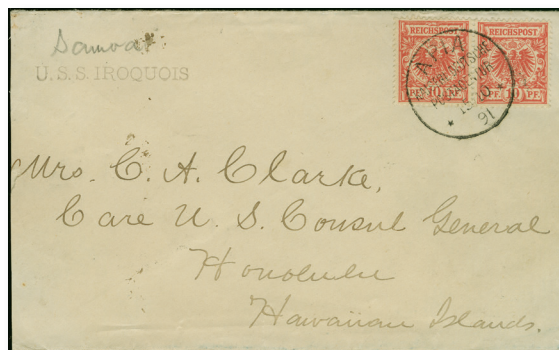 Samoa
U.S.S. IROQUOIS
REICHSPOST REICHSPOST
PF. 10 PF. 10 PF.
APIA
91
Mrs. C. A. Clarke,
Care U. S. Consul General
Honolulu
Hawaiian Islands.